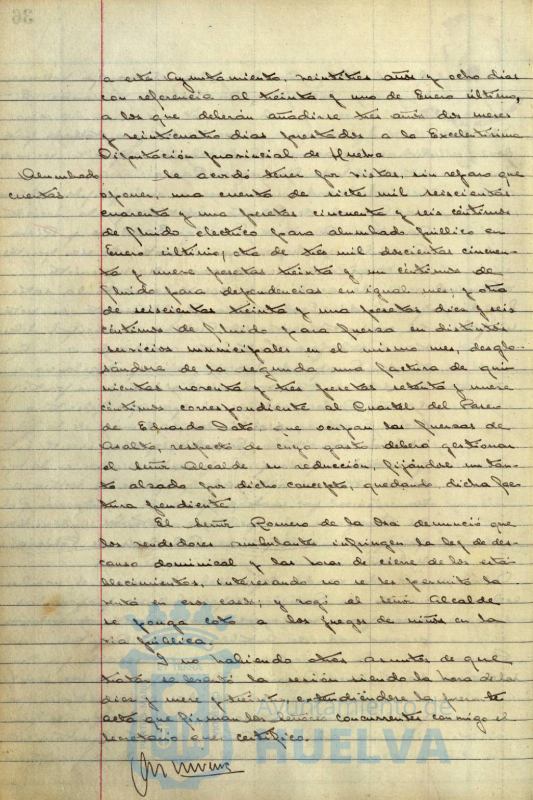 a este Ayuntamiento, veintitres años y ocho dias
con referencia al treinta y uno de Enero último,
a los que deberán añadirse tres años dos meses
y veinticuatro dias prestados a la Excelentísima
Diputación provincial de Huelva
Alumbrado
cuentas.
Se acordó tener por vistas, sin reparo que
oponer, una cuenta de siete mil seiscientas
cuarenta y una pesetas cincuenta y seis céntimos
de fluido electrico para alumbrado público en
Enero último, otra de tres mil doscientas cincuen-
ta y nueve pesetas treinta y un céntimos de
fluido para dependencias en igual mes; y otra
de seiscientas treinta y una pesetas diez y seis
céntimos de fluido para fuerza en distintos
servicios municipales en el mismo mes, desglo-
sándose de la segunda una factura de qui-
nientas noventa y tres pesetas setenta y nueve
céntimos correspondiente al Cuartel del Paseo
de Eduardo Dato, que ocupan las fuerzas de
Asalto, respecto de cuyo gasto deberá gestionar
el señor Alcalde su reducción, fijándose un tan-
to alzado por dicho concepto, quedando, dicha fac-
tura pendiente
El señor Romero de la Osa denunció que
los vendedores ambulantes infringen la ley de des-
canso dominical y las horas de cierre de los esta-
blecimientos, interesando no se les permita la
venta en esos casos; y rogó al señor Alcalde
se ponga coto a los juegos de niños en la
via pública.
Y no habiendo otros asuntos de que
tratar, se levantó la sesión siendo la hora de las
diez y nueve y treinta extendiéndose la presente
acta que firman los señores concurrentes conmigo el
secretario que certifico.
Ayuntamiento de
HUELVA